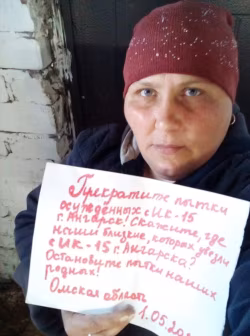 Прекратите пытки
осужденных с ИК-15
г. Ангарск! Скажите, где
наши близкие, которых увезли
с ИК-15 г. Ангарска?
Остановите пытки наших
родных!
Омская область
1.05.20